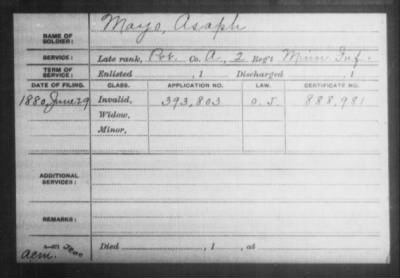 NAME OF SOLDIER: Mayo, Asaph
SERVICE: Late rank, Pvt. Co. A, 2 Reg't Minn Inf.
TERM OF SERVICE: Enlisted , 1 Discharged , 1
DATE OF FILING. CLASS. APPLICATION NO. LAW. CERTIFICATE NO.
1880, June 29 Invalid, 393,803 O. J. 888,981
Widow,
Minor,
ADDITIONAL SERVICES:
REMARKS:
Died , 1 , at